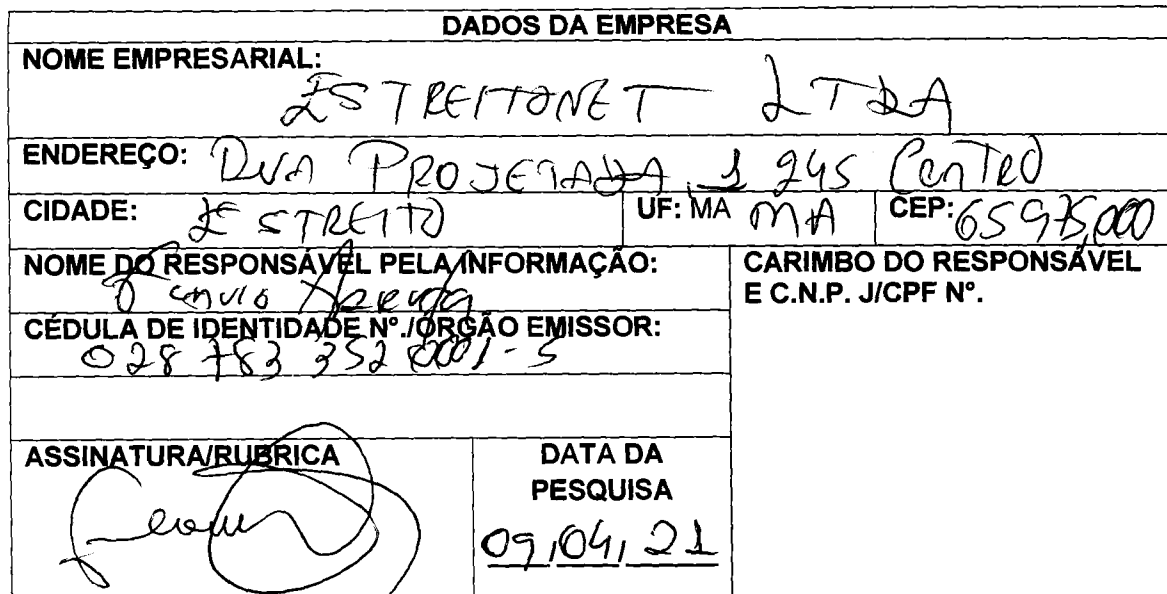 DADOS DA EMPRESA
NOME EMPRESARIAL:
ESTREITONET LTDA
ENDEREÇO: RUA PROJETADA 1 245 CenTRO
CIDADE: ESTREITO UF: MA MA CEP: 65975,000
NOME DO RESPONSÁVEL PELA INFORMAÇÃO:
CARIMBO DO RESPONSÁVEL
E C.N.P. J/CPF Nº.
CÉDULA DE IDENTIDADE Nº./ORGÃO EMISSOR:
028 783 352 0001-5
ASSINATURA/RUBRICA
DATA DA
PESQUISA
09,04,21